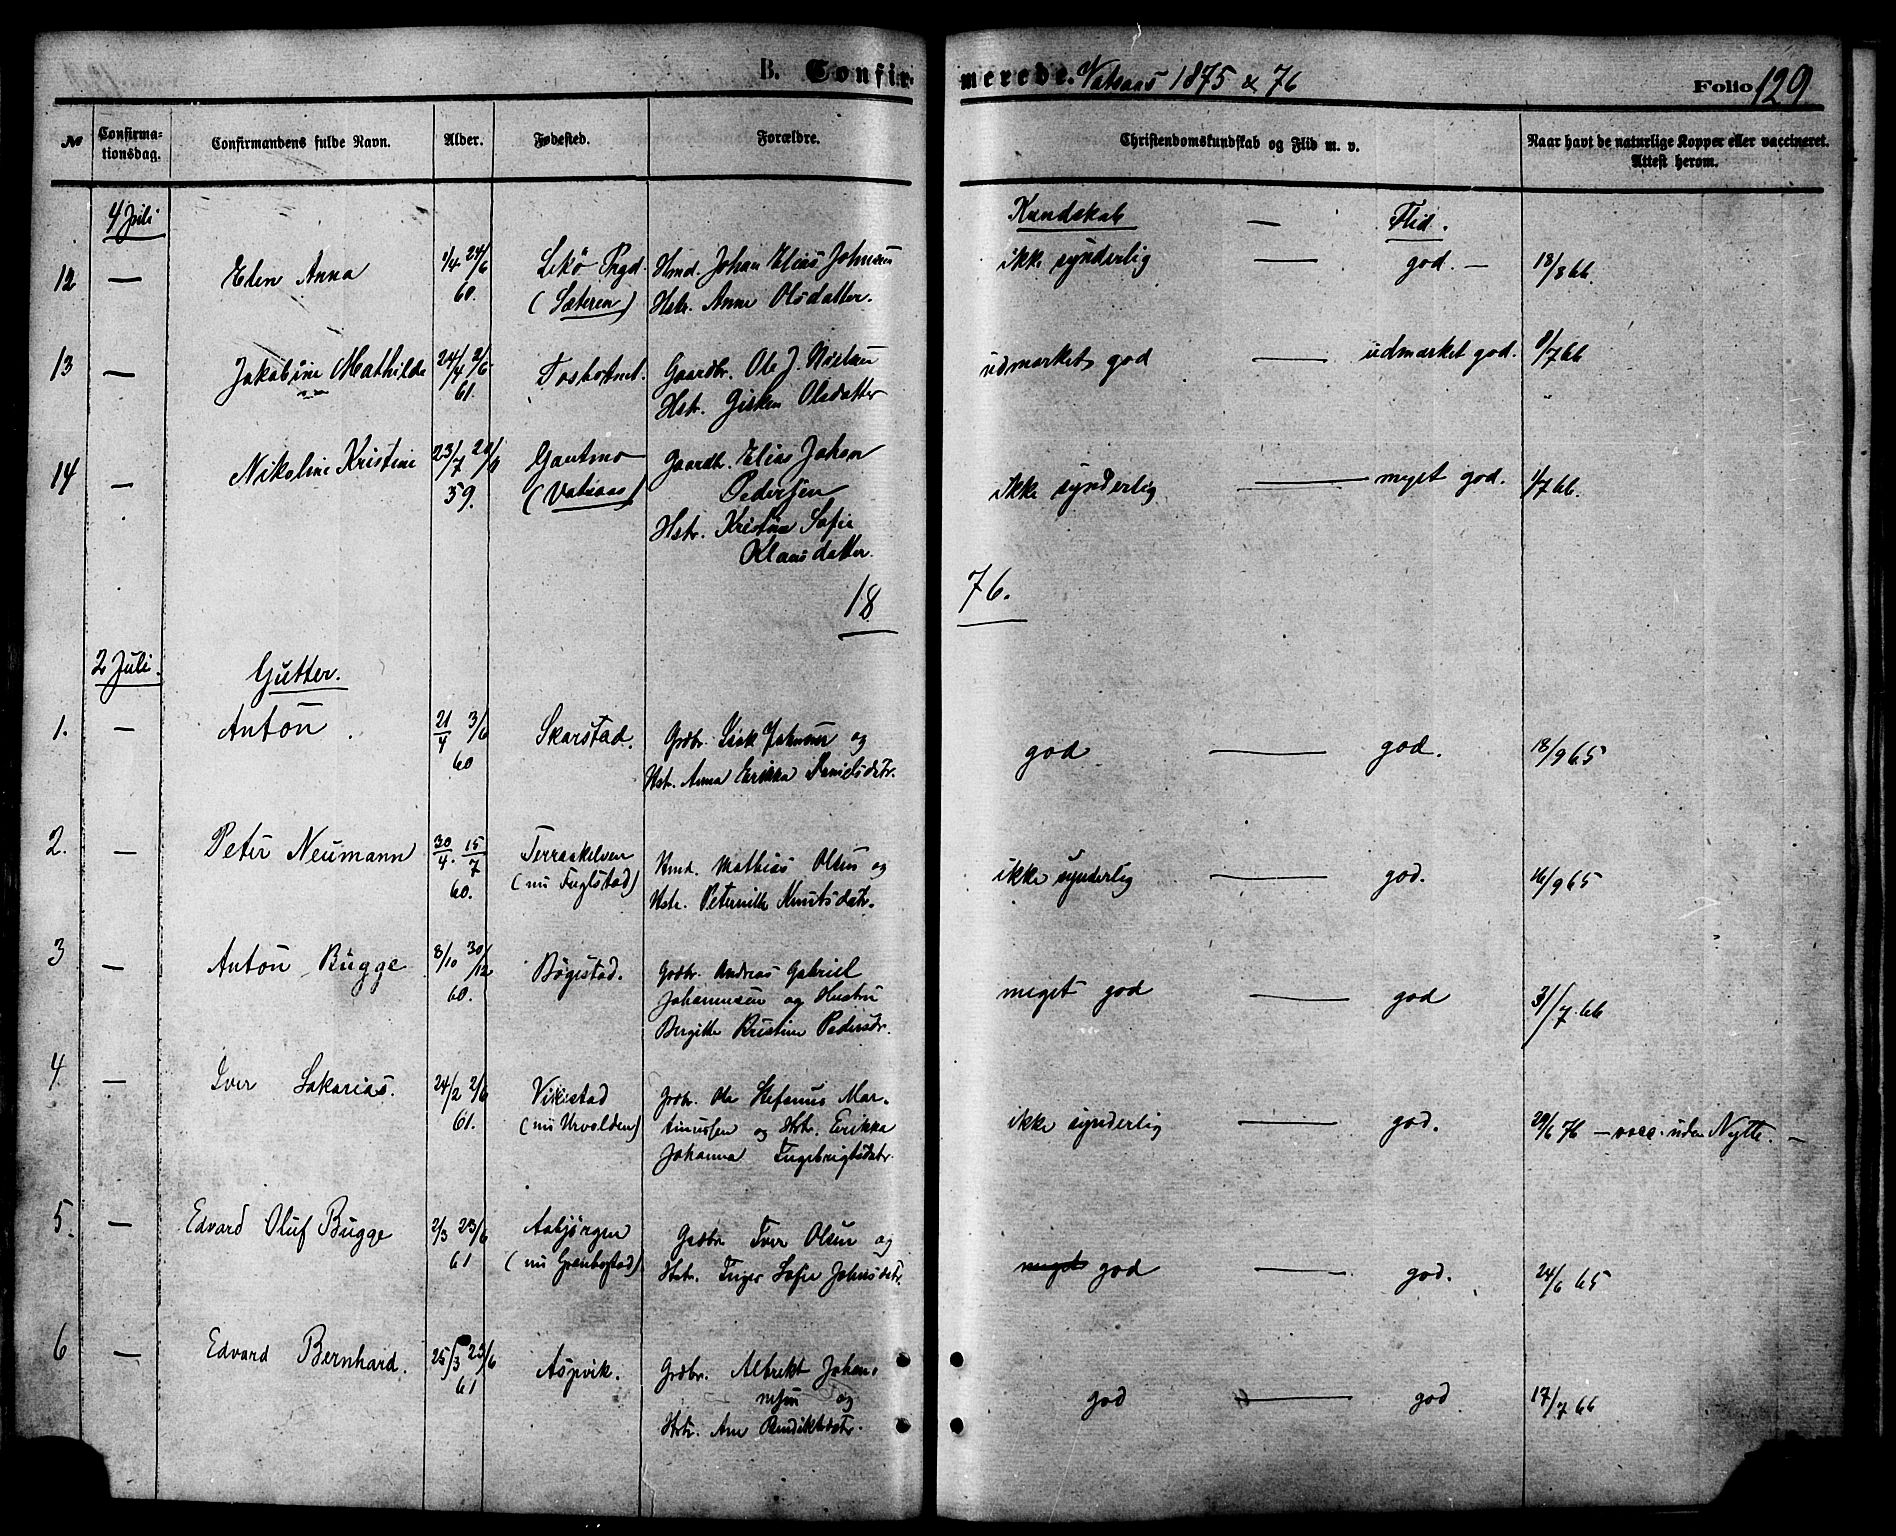 B. Confir-
merede. Vatsaas 1875 & 76
Folio 129
№ Confirma-tionsdag. Confirmandens fulde Navn. Alder. Fødested. Forældre. Christendomskundskab og Flid m. v. Naar havt de naturlige Kopper eller vaccineret. Attest herom.
4 Juli Kundskab — Flid.
12 — Elen Anna 1/4 24/6 60. Lekø Prgd. (Sæteren) Hmd. Johan Elias Johnsen
Hstr. Anne Olsdatter.
ikke synderlig — god. — 18/8 66.
13 — Jakobine Mathilde 24/4 2/6 61. Gaardbr. Ole J. Nielsen
Hstr. Gisken Olsdatter
udmærket god — udmærket god. 9/7 66
14 — Nikoline Kristine 23/7 59. Gautmo (Vatsaas) Gaardb. Elias Johan
Pedersen
Hstr. Kristine Sofie
Klausdatter.
ikke synderlig — myet god. 4/7 66.
18 76.
2 Juli. Gutter.
1. — Anton 21/4 3/6 60 Skarstad. Grdbr. Isak Johnsen og
Hstr. Anna Erikka Danielsdtr.
god — god. 18/9 65
2. — Peter Neumann 30/4. 15/7 60. Terraakelven (nu Fuglstad) Hmd. Mathias Olsen og
Hstr. Peternille Knutsdtr.
ikke synderlig — god. 16/9 65
3 — Anton Bugge 8/10 30/12 60. Bøgestad. Grdbr. Andreas Gabriel
Johannesen og Hustru
Bergitte Kristine Pedersdtr.
meget god — god 31/7 66
4. — Iver Sakarias. 24/2 2/6 61. Vikestad (nu Urvolden) Grdbr. Ole Stefanus Mar-
tinussen og Hstr. Erikka
Johanna Ingebrigtsdtr.
ikke synderlig — god. 29/6 76 — vacc. uden Nytte. —
5. — Edvard Oluf Bugge 2/3 23/6 61 Aabjørgen (nu Grønbogstad) Grdbr. Iver Olsen og
Hstr. Inger Sofie Johnsdtr.
meget god — god. 24/6 65
6 — Edvard Bernhard. 25/3 23/6 61 Aspvik. Grdbr. Albrekt Johan-
nesen og
Hstr. Ane Bendiktsdtr.
god — god. 17/7 66